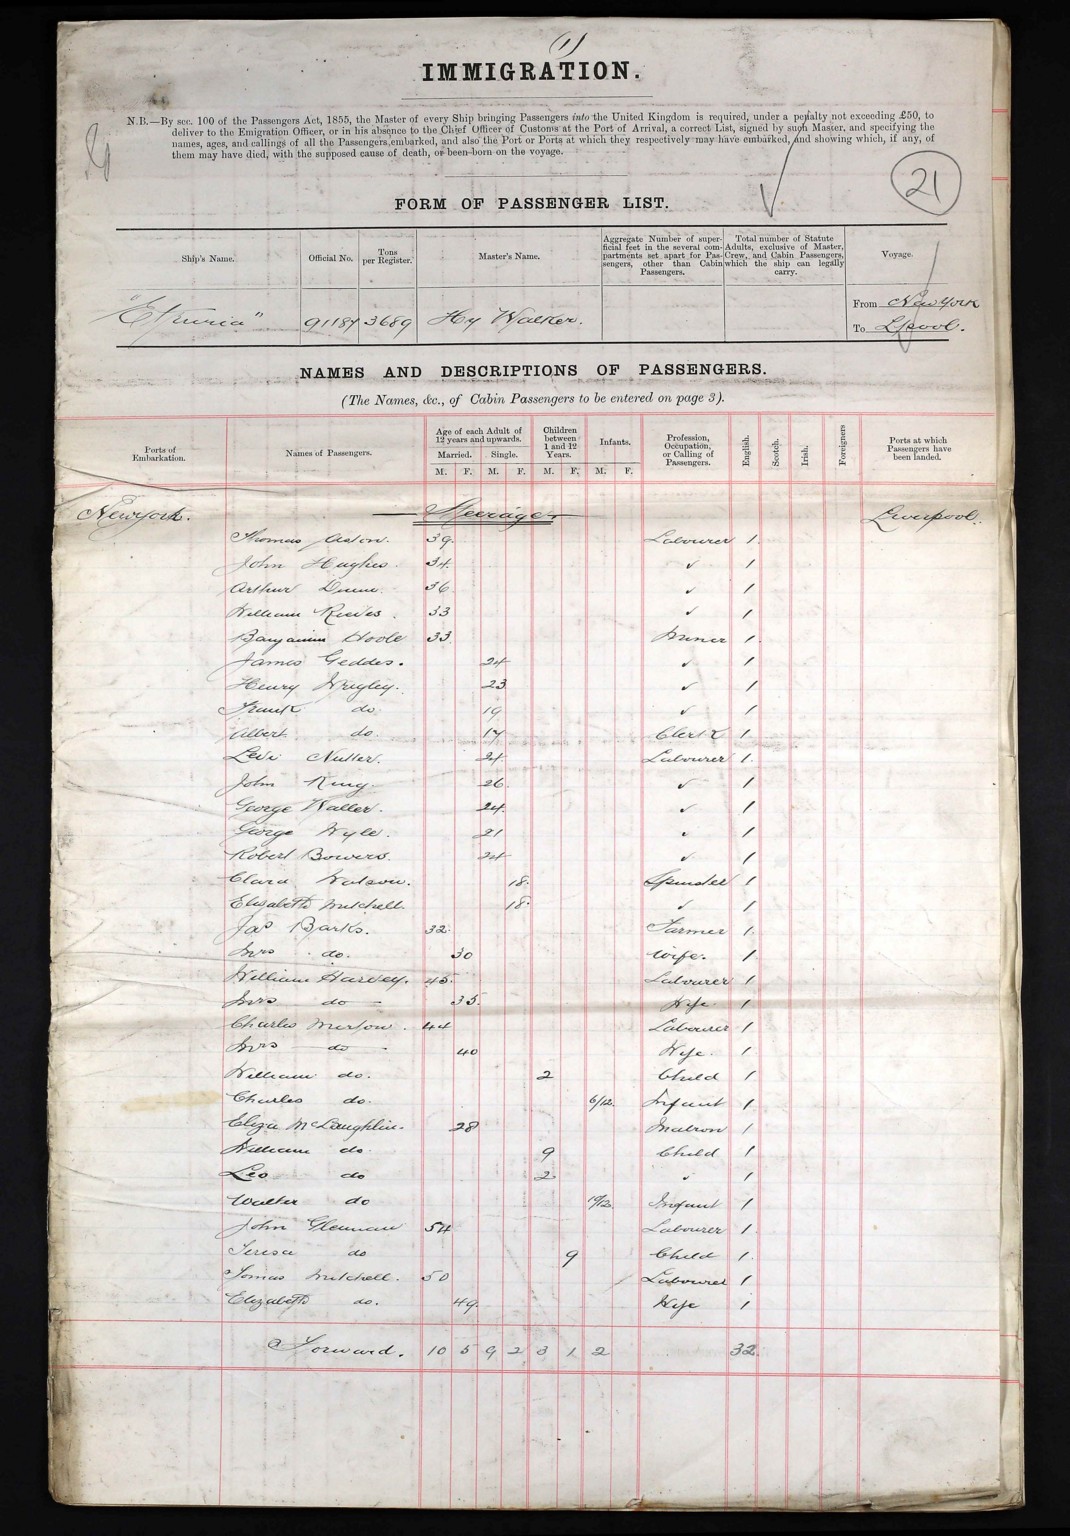 (1)
IMMIGRATION.
N.B.—By sec. 100 of the Passengers Act, 1855, the Master of every Ship bringing Passengers into the United Kingdom is required, under a penalty not exceeding £50, to
deliver to the Emigration Officer, or in his absence to the Chief Officer of Customs at the Port of Arrival, a correct List, signed by such Master, and specifying the
names, ages, and callings of all the Passengers embarked, and also the Port or Ports at which they respectively may have embarked, and showing which, if any, of
them may have died, with the supposed cause of death, or been born on the voyage.
21
FORM OF PASSENGER LIST.
Ship's Name. Official No. Tons per Register. Master's Name. Aggregate Number of superficial feet in the several compartments set apart for Passengers, other than Cabin Passengers. Total number of Statute Adults, exclusive of Master, Crew, and Cabin Passengers, which the ship can legally carry. Voyage.
"Etruria" 91187 3689 Hy Walker. From New York
To L'pool.
NAMES AND DESCRIPTIONS OF PASSENGERS.
(The Names, &c., of Cabin Passengers to be entered on page 3).
Ports of Embarkation. Names of Passengers. Age of each Adult of 12 years and upwards. Children between 1 and 12 Years. Infants. Profession, Occupation, or Calling of Passengers. English. Scotch. Irish. Foreigners Ports at which Passengers have been landed.
Married. Single.
M. F. M. F. M. F. M. F.
New York. Steerage Liverpool.
Thomas Aston. 39. Labourer 1.
John Hughes. 34. ✓ 1
Arthur Dunn. 36 ✓ 1
William Reeves. 33 ✓ 1
Benjamin Hoole 33. Miner 1.
James Geddes. 24 ✓ 1
Henry Wrigley. 23 ✓ 1
Frank do 19 ✓ 1
Albert do. 17 Clerk 1.
Levi Nutter. 24. Labourer 1.
John King. 26. ✓ 1
George Waller. 24. ✓ 1
George Wyle. 21 ✓ 1
Robert Bowers. 24 ✓ 1
Clara Watson. 18. Spinster 1
Elizabeth Mitchell. 18. ✓ 1
Jas Barks. 32. Farmer 1.
Mrs do. 30 Wife. 1
William Harvey. 45. Labourer 1
Mrs do 35. Wife 1
Charles 44 Labourer 1
Mrs do 40 Wife. 1
William do. 2 Child 1
Charles do. 6/12. Infant 1
Eliza McLaughlin. 28 Matron 1
William do. 9 Child 1
Leo do 2 ✓ 1
Walter do 10/12. Infant 1
John 54 Labourer 1
Teresa do 9 Child 1.
Tomas Mitchell. 50 Labourer 1
Elizabeth do. 49. Wife 1
Forward. 10 5 9 2 3 1 2 32.